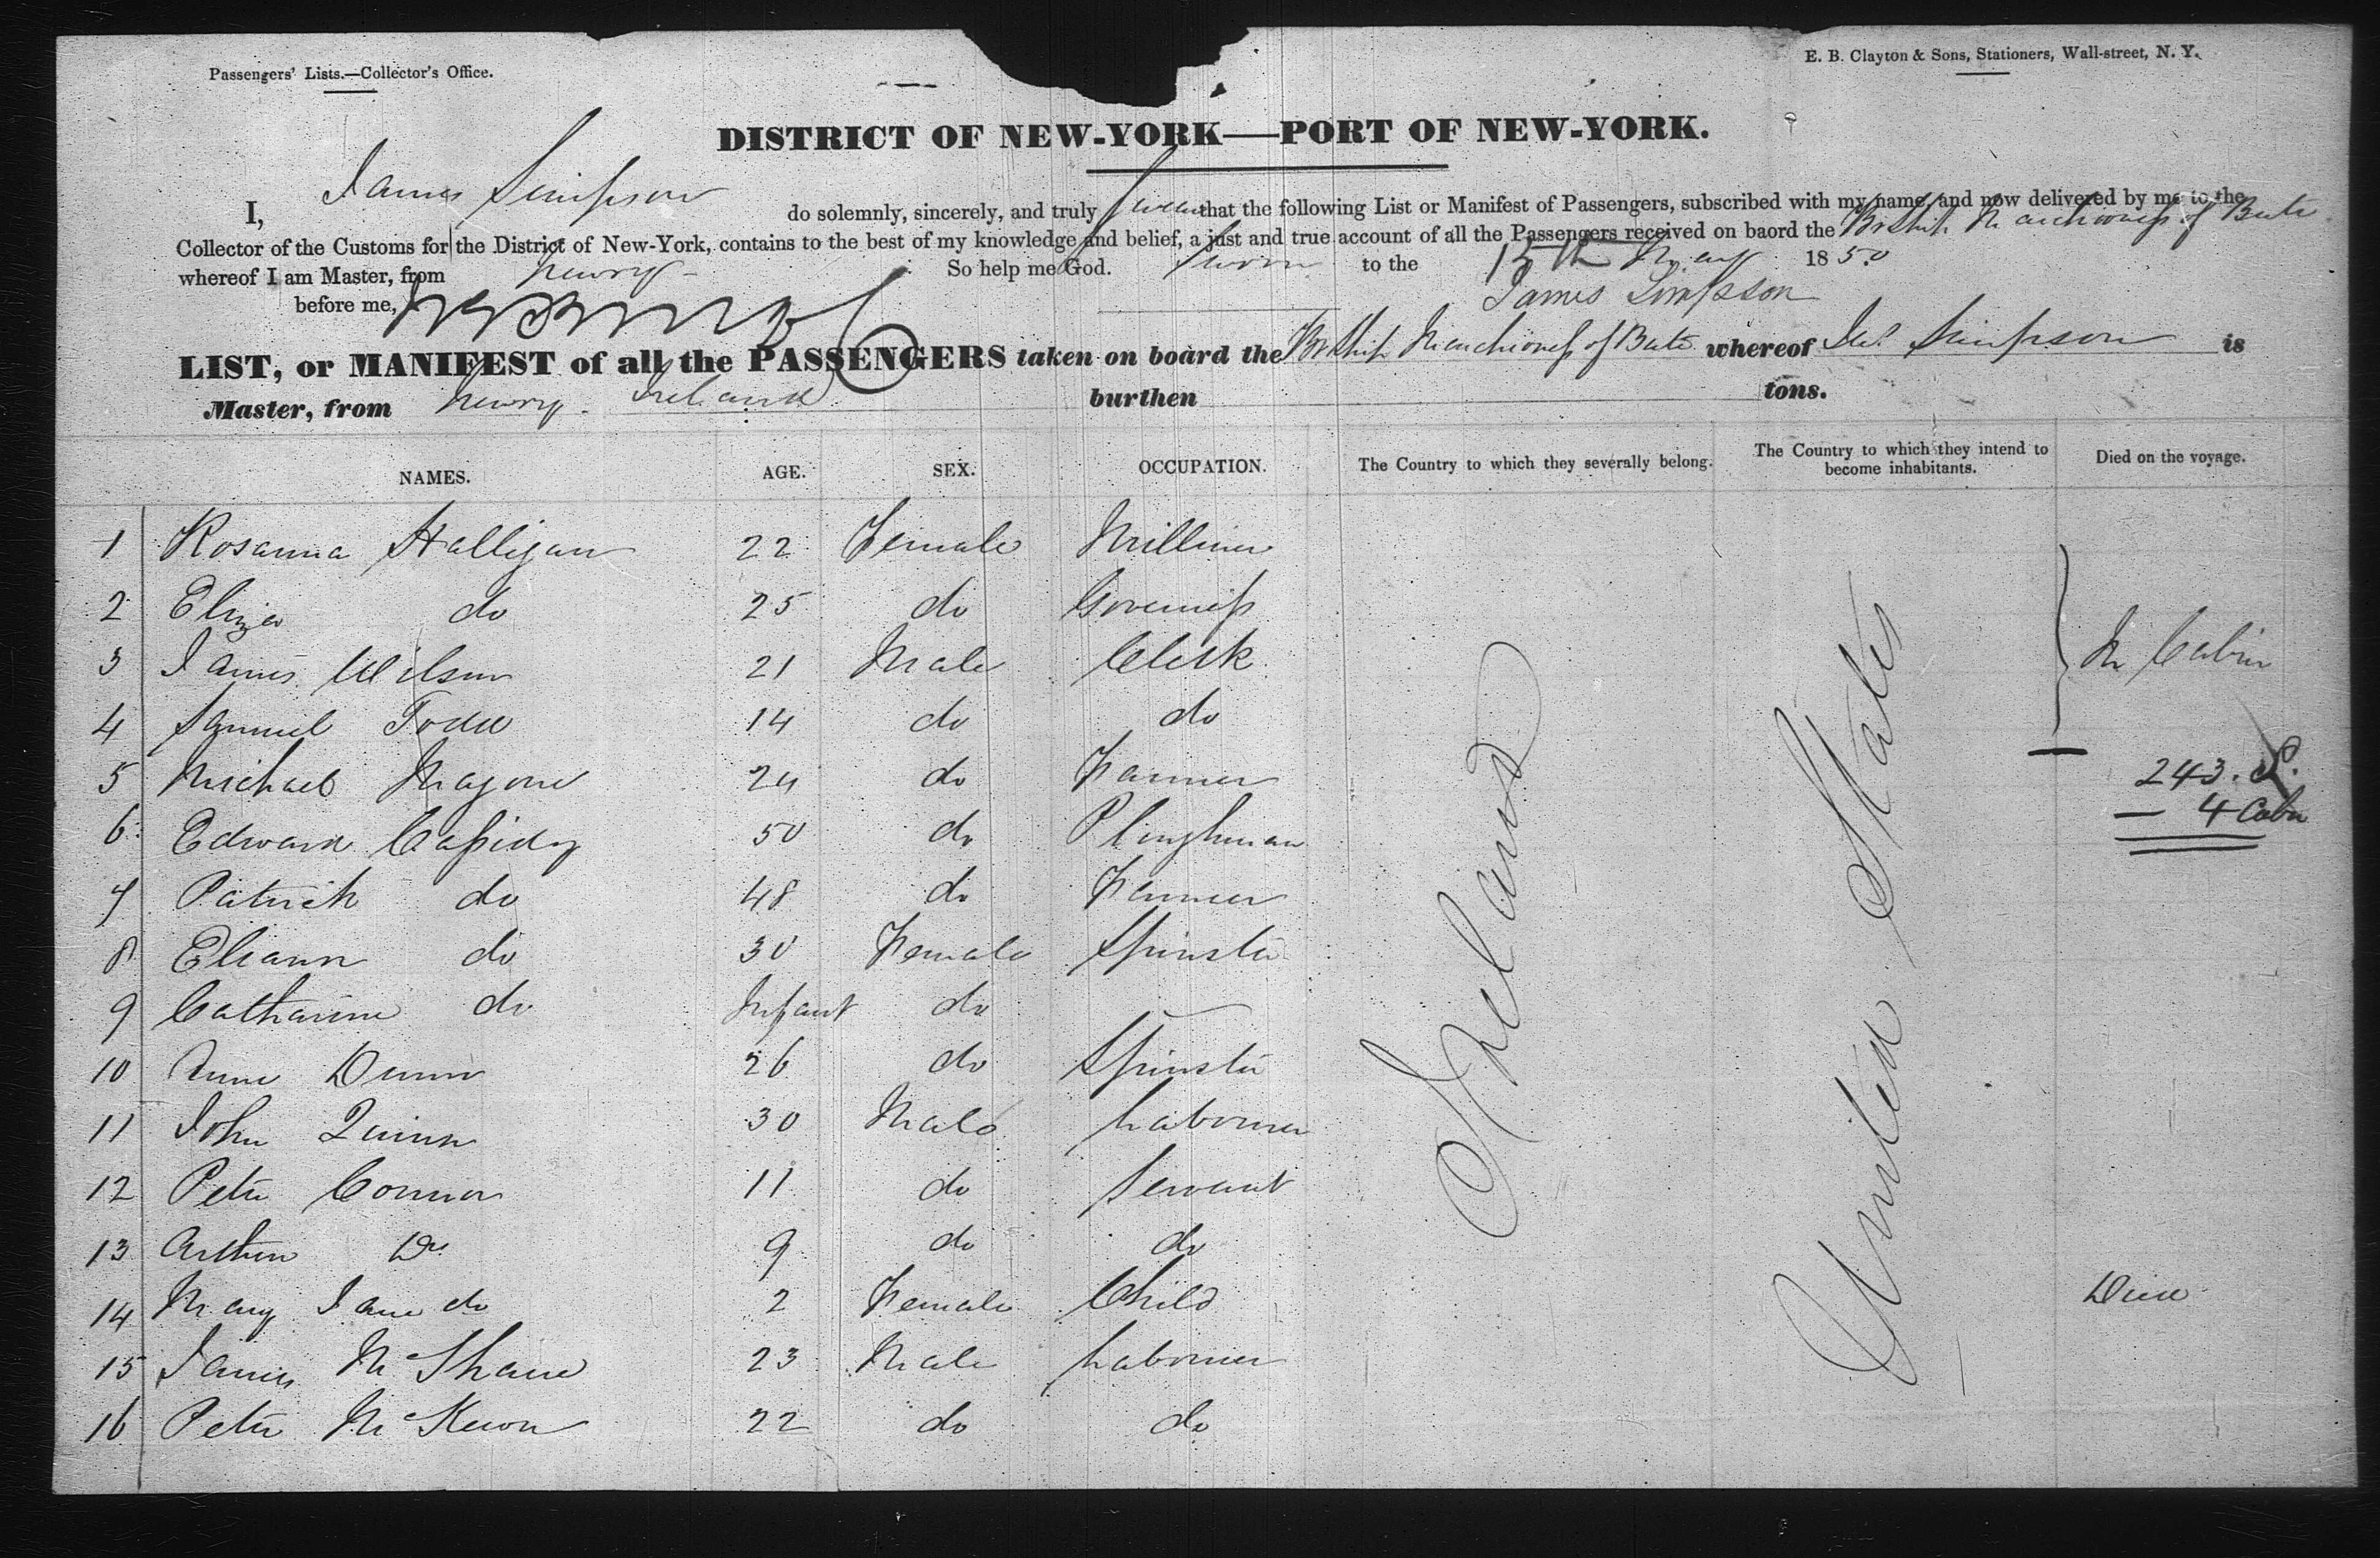 Passengers' Lists.—Collector's Office.
E. B. Clayton & Sons, Stationers, Wall-street, N. Y.
DISTRICT OF NEW-YORK—PORT OF NEW-YORK.
I, James Simpson do solemnly, sincerely, and truly swear that the following List or Manifest of Passengers, subscribed with my name, and now delivered by me to the
Collector of the Customs for the District of New-York, contains to the best of my knowledge and belief, a just and true account of all the Passengers received on baord the Br Ship Marchioness of Bute
whereof I am Master, from Newry So help me God. Sworn to the 15th May 1850
before me, James Simpson
LIST, or MANIFEST of all the PASSENGERS taken on board the Br Ship Marchioness of Bute whereof Jas Simpson is
Master, from Newry Ireland burthen tons.
NAMES. AGE. SEX. OCCUPATION. The Country to which they severally belong. The Country to which they intend to become inhabitants. Died on the voyage.
1 Rosanna Halligan 22 Female Milliner
2 Eliza do 25 do Governess
3 James Wilson 21 Male Clerk
In Cabin
4 Samuel Todd 14 do do
5 Michael Magone 24 do Farmer
243. S.
6 Edward Cassidy 50 do Ploughman
4 Cabin
7 Patrick do 48 do Farmer
8 Eliann do 30 Female Spinster
9 Catharine do Infant do —
10 Anne Dunn 26 do Spinster
11 John Quinn 30 Male Labourer
12 Peter Connor 11 do Servant
13 Arthur Do 9 do do
14 Mary Jane do 2 Female Child Died
15 James McShane 23 Male Labourer
16 Peter McKeon 22 do do
Ireland
United States